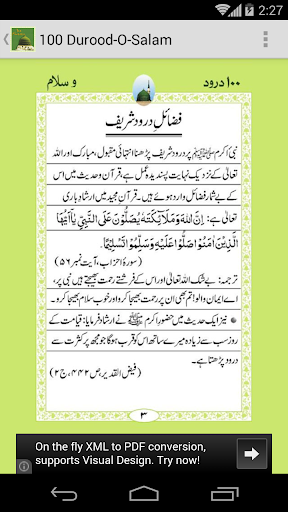 2:27
100 Durood-O-Salam
۱۰۰ درود
و سلام
فضائل درود شریف
نبی اکرم ﷺ پر درود شریف پڑھنا انتہائی مقبول، مبارک اور اللہ
تعالیٰ کے نزدیک نہایت پسندیدہ عمل ہے، قرآن و حدیث میں اس
کے بے شمار فضائل وارد ہوئے ہیں۔ قرآن مجید میں ارشاد باری
تعالیٰ ہے: اِنَّ اللّٰهَ وَمَلٰٓئِكَتَهٗ يُصَلُّوْنَ عَلَى النَّبِيِّ يٰۤاَيُّهَا
الَّذِيْنَ اٰمَنُوْا صَلُّوْا عَلَيْهِ وَسَلِّمُوْا تَسْلِيْمًا۔
(سورۂ احزاب، آیت نمبر ۵۶)
ترجمہ: بے شک اللہ تعالیٰ اور اس کے فرشتے رحمت بھیجتے ہیں نبی پر،
اے ایمان والو! تم بھی ان پر رحمت بھیجا کرو اور خوب سلام بھیجا کرو۔
نیز ایک حدیث میں حضور اکرم ﷺ نے ارشاد فرمایا: قیامت کے
روز سب سے زیادہ میرے ساتھ اس کو قرب ہوگا جو مجھ پر کثرت سے
درود پڑھتا ہے۔
(فیض القدیر، ص ۴۴۲، ج ۲)
۳
On the fly XML to PDF conversion,
supports Visual Design. Try now!